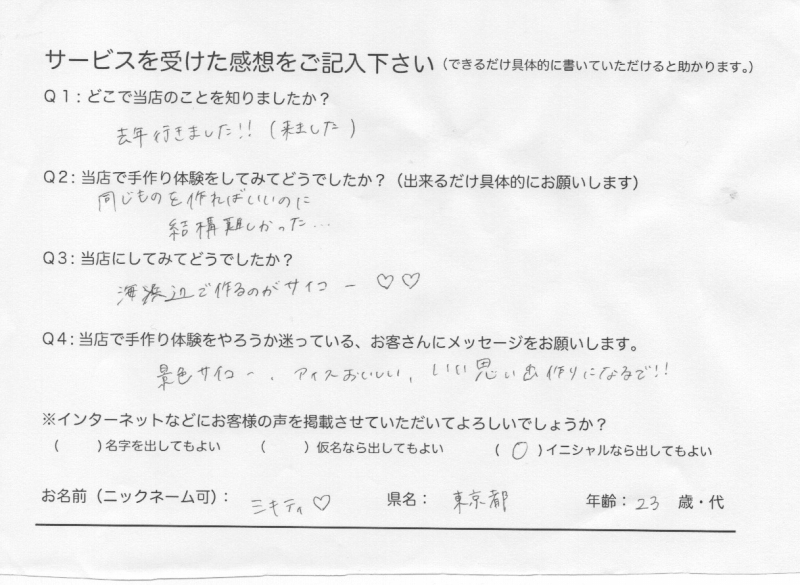 サービスを受けた感想をご記入下さい(できるだけ具体的に書いていただけると助かります。)
Q1:どこで当店のことを知りましたか?
去年行きました!!(来ました)
Q2:当店で手作り体験をしてみてどうでしたか?(出来るだけ具体的にお願いします)
同じものを作ればいいのに
結構難しかった…
Q3:当店にしてみてどうでしたか?
海浜辺で作るのがサイコー ♡♡
Q4:当店で手作り体験をやろうか迷っている、お客さんにメッセージをお願いします。
景色サイコー、アイスおいしい、いい思い出作りになるで!!
※インターネットなどにお客様の声を掲載させていただいてよろしいでしょうか?
( )名字を出してもよい ( )仮名なら出してもよい (○)イニシャルなら出してもよい
お名前(ニックネーム可): ミキティ♡ 県名: 東京都 年齢:23 歳・代